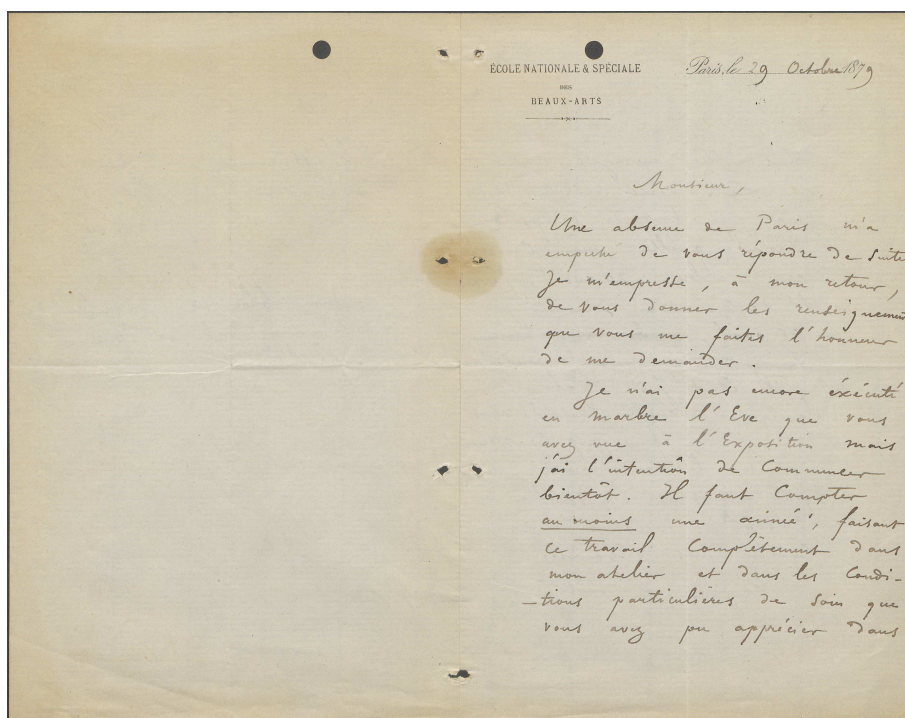 ÉCOLE NATIONALE & SPÉCIALE
DES
BEAUX-ARTS
Paris, le 29 Octobre 1879
Monsieur,
Une absense de Paris m'a
empêché de vous répondre de suite
Je m'empresse, à mon retour,
de vous donner les renseignement
que vous me faites l'honneur
de me demander.
Je n'ai pas encore éxécuté
en marbre l'Eve que vous
avez vue à l'Exposition mais
j'ai l'intention de Commencer
bientôt. Il faut Compter
au moins une année, faisant
ce travail Complètement dans
mon atelier et dans les Condi-
-tions particulières de soin que
vous avez pu apprécier dans